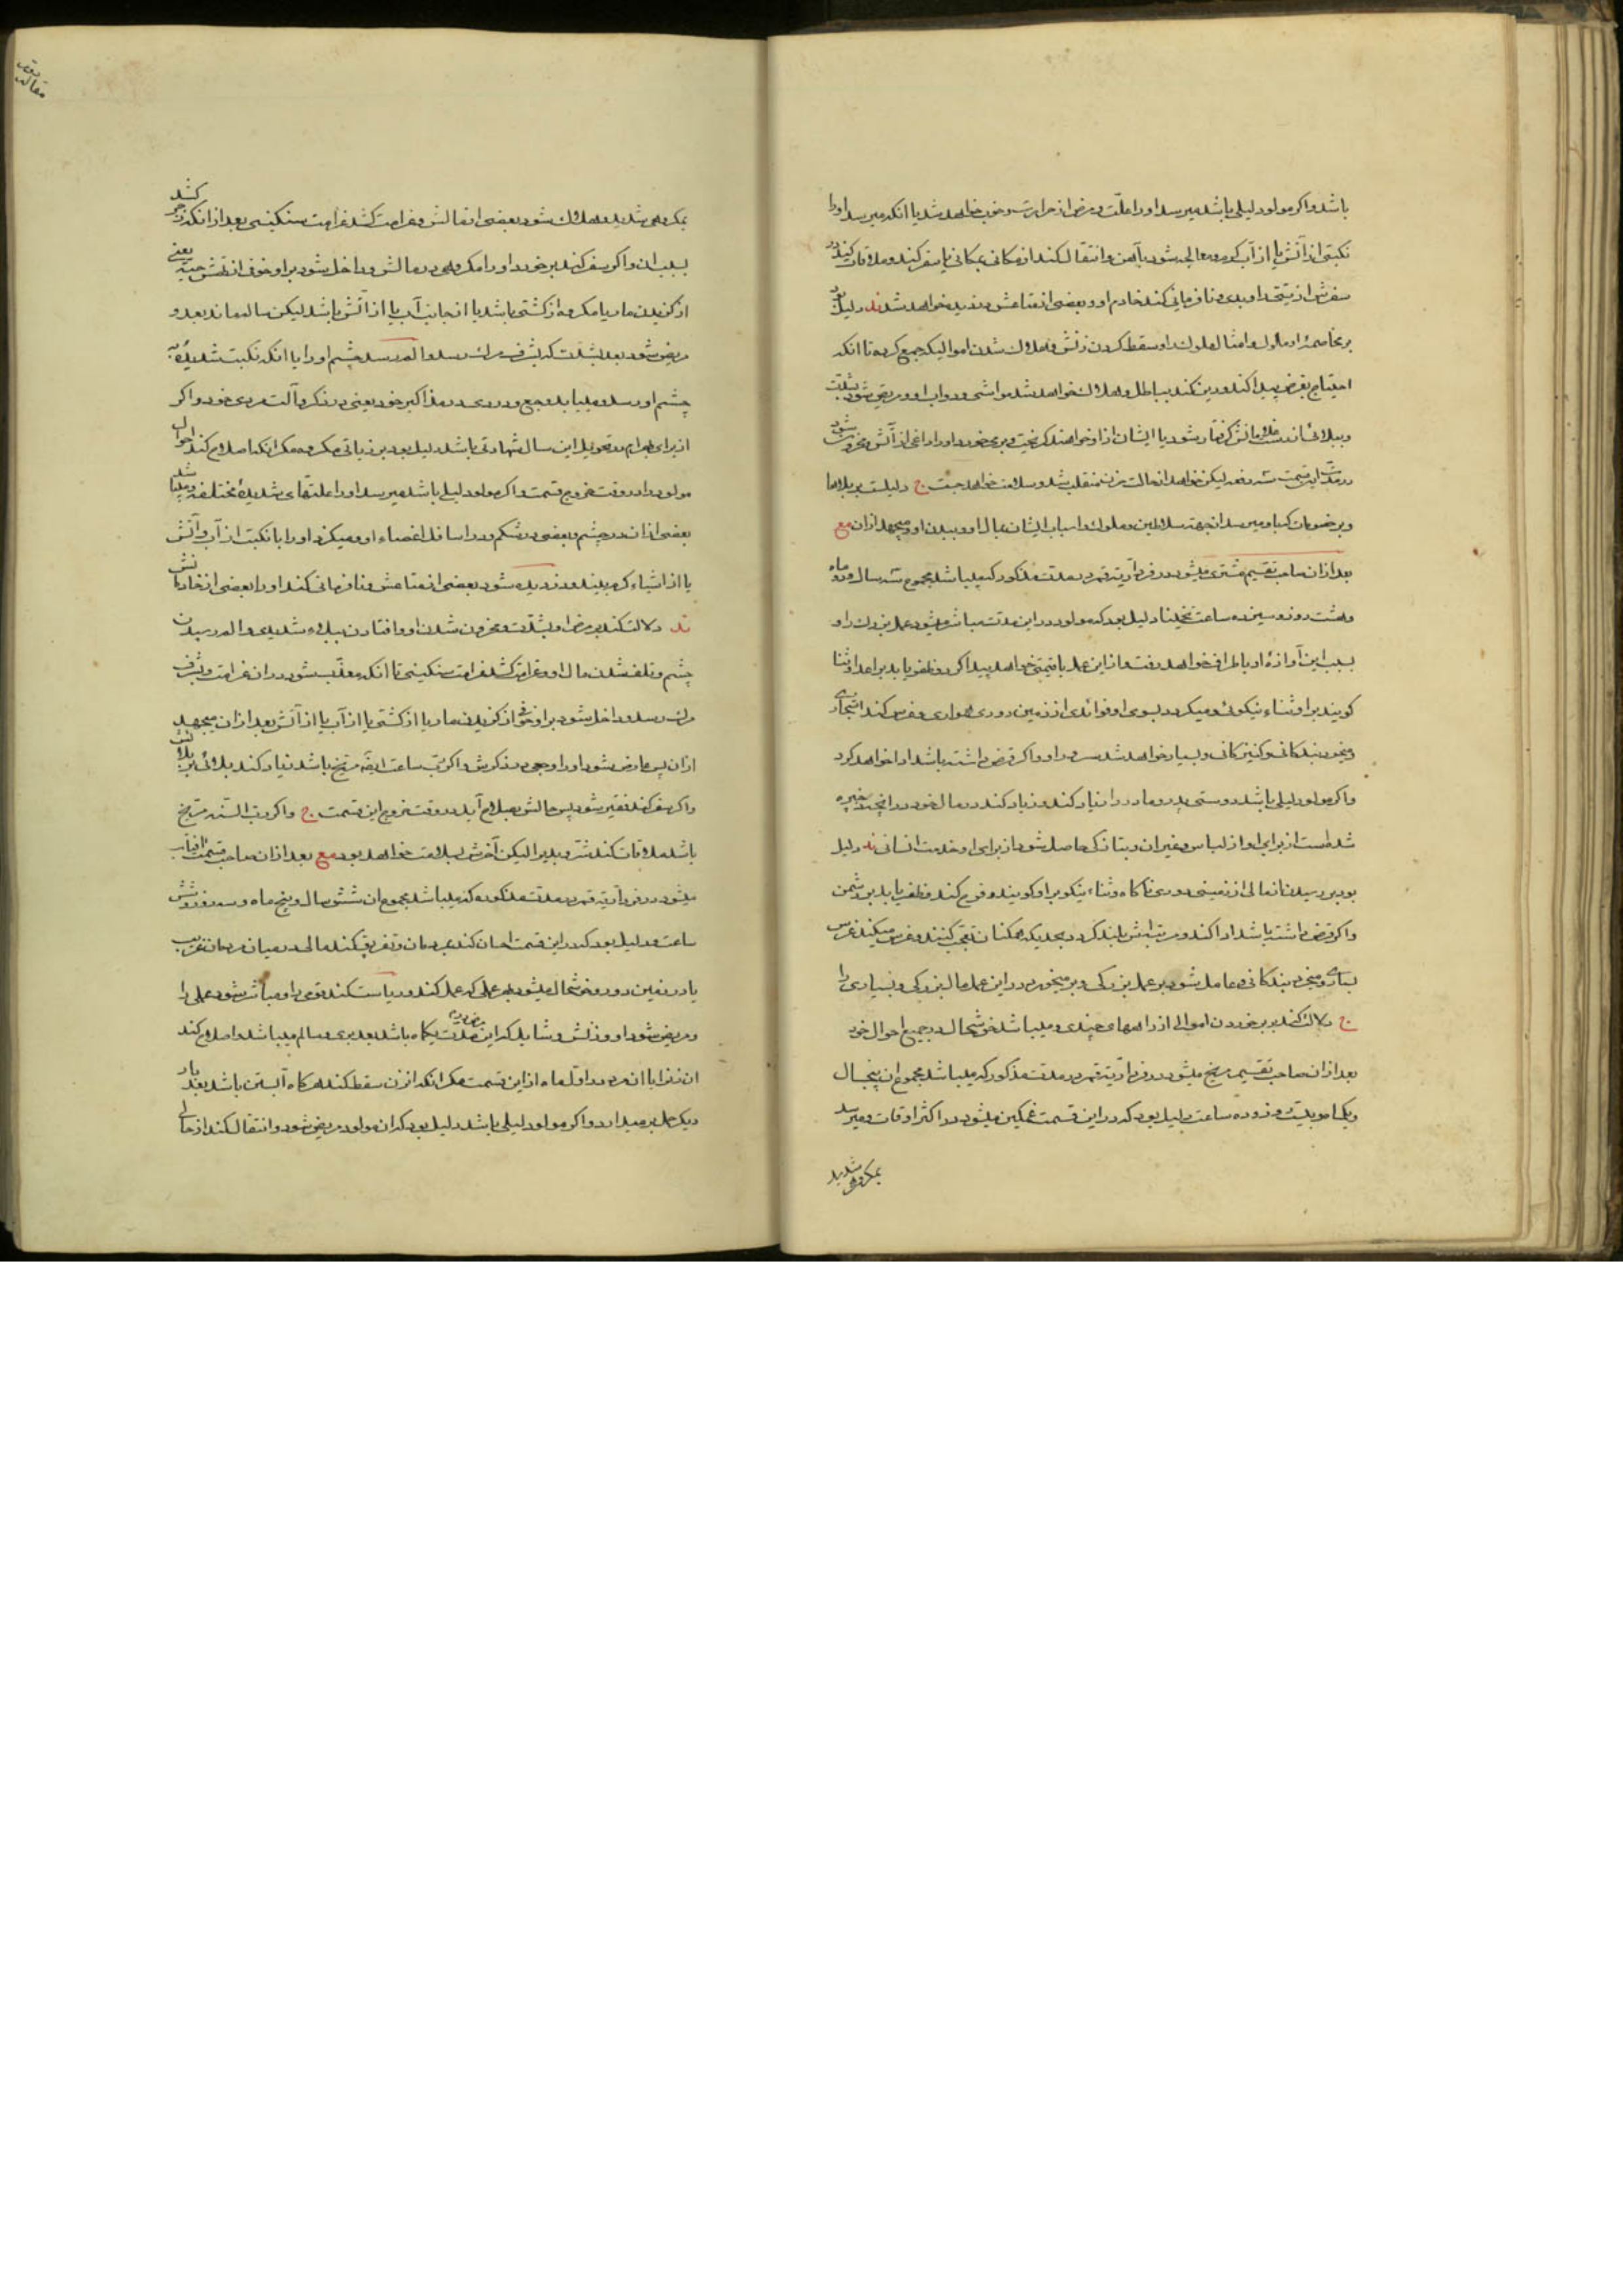 باشد و اکر مولود لیلی باشد میرسد او را علت و مرض از حرارت و خوب خواهد شد یا انکه میرسد او را
نکبتی از آتش یا از آب کرم و معالجه شود بآهن و انتقال کند از مکانی بمکانی یا سفر کند و ملاقات کند در
سفرش از و نافرمانی کند خادم او و بعضی از متاعش دزدیده خواهد شد ند دلیل بود
بر مخاصمهٔ او ملوک و امثال ملوک را و سقط کردن زنش و هلاک شدن اموالیکه جمع کرده تا انکه
احتیاج بقرض پیدا کند و رهن کند بباطل و هلاک خواهد شد مواشی و دواب او و مریض شود بشدت
و ببلائی از دست غلامانش گرفتار شود یا ایشان از او خواهند گریخت و بر میخورد او را داغی از آتش و محزون شود
در مدت این قسمت سه دفعه لیکن خواهد از حالت حزن منقلب شد و سلامت خواهد جست ج دلیلست بر بلاها
و بر خصومات که باو میرسد از جهت سلاطین و ملوک و اسباب ایشان بمال او و ببدن او و میجهد از ان مع
بعد از ان صاحب تقسیم مشتری میشود در فرداریه قمر در مدت مذکور که میباشد مجموع سه سال و دو ماه
و هشت روز و سیزده ساعت تخمینا دلیل بود که مولود در این مدت مباشر میشود عمل بزرک را و
بسبب این آوازهٔ او باطراف خواهد رفت و از این عمل با قیمتی خواهد پیدا کرد و ظفر یابد بر اعدا و ثنا
کویند بر او ثناء نیکوئی و میکردد بسوی او فوائدی از زمین دوری همواری و غرس کند اشجاری
و میخرد بندکانی و کنیزکانی و بسیار خواهد شد سرور او و اکر قرض داشته باشد ادا خواهد کرد
و اکر مولود لیلی باشد دوستی پدر و مادر را زیاد کند و زیاد کند در مال خود در انچه ذخیره
شده است از برای او از لباس و غیر ان و بتازکی حاصل شود از برای او خدمت انسانی ند دلیل
بود بر رسیدن مالی از زمینی دوری ناکاه و ثناء نیکو بر او کویند و فرح کند و ظفر یابد بر دشمن
و اکر قرض داشته باشد ادا کند و مرتبه اش بلند کردد بحدیکه همکنان تعجب کنند و غرس میکند غرس
بسیاری و میخرد بندکانی و عامل شود بر عمل بزرکی و بر میخورد در این عمل مال بزرکی و بسیاری را
ج دلالت کند بر بر خوردن اموالی از راههای چندی و میباشد خوشحال در جمیع احوال خود
بعد از ان صاحب تقسیم مریخ میشود در فرداریه قمر در مدت مذکور که میباشد مجموع ان پنجسال
و یکماه و بیست و زوده ساعت دلیل بود که در این قسمت غمکین میشود در اکثر اوقات و میرسد
بمکروهی شدید
بمکروهی شدید و هلاک شود بعضی از مالش و غرامت کشد غرامت سنکینی بعد از انکه زجر کشد
بسبب ان و اکر سفر کند بر خورد او را مکروهی در مالش و داخل شود بر او خوف از یعنی
از کزیدن مار یا مکروه از کشتی باشد یا از جانب آب یا از آتش باشد لیکن سالم ماند بعد و
مریض شود بعد بشدت که بشرف مرک رسد و الم رسد چشم او را یا انکه نکبت شدیده به
چشم او رسد و بیابد وجع و دردی در مذاکیر خود یعنی در ذکر و آلت مردی خود و اکر
از برای بهرام در تحویل این سال شهادتی باشد دلیل بود بر زیادتی مکروه مکر انکه اصلاح کند احوال
مولود را در وقت خروج قسمت و اکر مولود لیلی باشد میرسد او را علتهای شدیدهٔ مختلفه و میباشد
بعضی از ان در چشم و بعضی در شکم و در اسافل اعضاء او و میکزد او را یا نکبت از آب و آتش
یا از اشیاء کرم بیند و دزدیده شود بعضی از متاعش و نافرمانی کند او را بعضی از خادمانش
ند دلالت کند بر مرض او بشدت و محزون شدن او و افتادن ببلاء شدیدی و الم رسیدن
چشم و تلف شدن مال او و غرامت کشد غرامت سنکینی تا انکه معذب شود در ان غرامت و بشرف
مرک رسد و داخل شود بر او خوفی از کزیدن مار یا از کشتی یا از آب یا از آتش بعد از ان میجهد
از ان پس عارض شود او را وجعی در ذکرش و اکر رب ساعت این مریخ باشد زیاد کند بلائی بر بلائش
و اکر سفر کند فقیر شود پس حالش بصلاح آید در وقت خروج این قسمت ج و اکر رب السنه مریخ
باشد ملاقات کند شر و بد را لیکن آخرش بسلامت خواهد بود مع بعد از ان صاحب قسمت آفتاب
میشود در فرداریه قمر در مدت مذکوره که میباشد مجموع ان شش سال و پنج ماه و سه روز و شش
ساعت و دلیل بود که در این قسمت احسان کند بمردمان و تفریق کند مالی در میان مردمان غریب
یا در زمین دور و خوشحال میشود بهر عملی که عمل کند و ریاست کند قومی را و مباشر شود عملی را
و مریض شود او و زنش و شاید که این مدت مرض او یکماه باشد بعد بری و سالم میباشد و اصلاح کند
ان زنرا با ان مرد در اول ماه از این قسمت مکر انکه ان زن سقط کند هرکاه آبستن باشد بعد بار
دیکر حمل بر میدارد و اکر مولود لیلی باشد دلیل بود که ان مولود مریض شود و انتقال کند از حالی